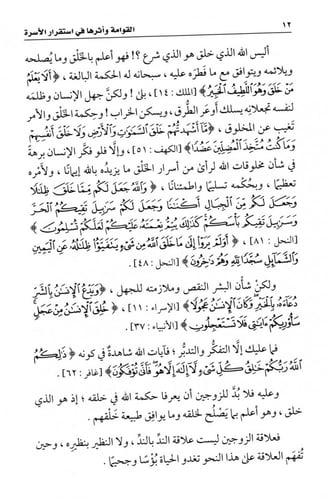 ١٢ القوامة وأثرها في استقرار الأسرة
أليس الله الذي خلق هو الذي شرع ؟! فهو أعلم بالخَلْق وما يُصلحه
ويلائمه ويتوافق مع ما فَطَره عليه، سبحانه له الحكمة البالغة، ﴿أَلَا يَعْلَمُ
مَنْ خَلَقَ وَهُوَ اللَّطِيفُ الْخَبِيرُ﴾ [الملك : ١٤]، ولكنَّ جهل الإنسان وظلمَه
لنفسه تجعلانِه يسلك أوعَر الطُّرق، ويسكن الخراب! وحكمةُ الخالق
تغيب عن المخلوق، ﴿مَّا أَشْهَدتُّهُمْ خَلْقَ السَّمَاوَاتِ وَالْأَرْضِ وَلَا خَلْقَ أَنفُسِهِمْ
وَمَا كُنتُ مُتَّخِذَ الْمُضِلِّينَ عَضُدًا﴾ [الكهف : ٥١]، وإلَّا فلو فكَّر الإنسان برهةً
في شأن مخلوقات الله لرأى من أسرار الخَلْق ما يزيدُه بالله إيمانًا، ولأمره
تعظيمًا، وبحُكمه تسليمًا واطمئنانًا، ﴿وَاللَّهُ جَعَلَ لَكُم مِّمَّا خَلَقَ ظِلَالًا
وَجَعَلَ لَكُم مِّنَ الْجِبَالِ أَكْنَانًا وَجَعَلَ لَكُمْ سَرَابِيلَ تَقِيكُمُ الْحَرَّ
وَسَرَابِيلَ تَقِيكُم بَأْسَكُمْ كَذَلِكَ يُتِمُّ نِعْمَتَهُ عَلَيْكُمْ لَعَلَّكُمْ تُسْلِمُونَ﴾
[النحل : ٨١]، ﴿أَوَلَمْ يَرَوْا إِلَى مَا خَلَقَ اللَّهُ مِن شَيْءٍ يَتَفَيَّأُ ظِلَالُهُ عَنِ الْيَمِينِ
وَالشَّمَائِلِ سُجَّدًا لِّلَّهِ وَهُمْ دَاخِرُونَ﴾ [النحل : ٤٨].
ولكنْ شأن البشر النقص وملازمته للجهل، ﴿وَيَدْعُ الْإِنسَانُ بِالشَّرِّ
دُعَاءَهُ بِالْخَيْرِ وَكَانَ الْإِنسَانُ عَجُولًا﴾ [الإسراء : ١١]، ﴿خُلِقَ الْإِنسَانُ مِنْ عَجَلٍ
سَأُورِيكُمْ آيَاتِي فَلَا تَسْتَعْجِلُونِ﴾ [الأنبياء : ٣٧].
فما عليك إلَّا التفكُّر والتدبُّر؛ فآيات الله شاهدةٌ في كونه ﴿ذَلِكُمُ
اللَّهُ رَبُّكُمْ خَالِقُ كُلِّ شَيْءٍ لَّا إِلَهَ إِلَّا هُوَ فَأَنَّى تُؤْفَكُونَ﴾ [غافر : ٦٢].
وعليه فلا بُدَّ للزوجين أن يعرفا حكمة الله في خلقه ؛ إذ هو الذي
خلق، وهو أعلم بما يَصْلُح لخلقه وما يوافق طبيعة خَلْقهم .
فعلاقة الزوجين ليست علاقة النِّدِّ بالنِّدِّ، ولا النظير بنظيره، وحين
تُفهَم العلاقة على هذا النحو تغدو الحياة بُؤْسًا وجحيمًا.